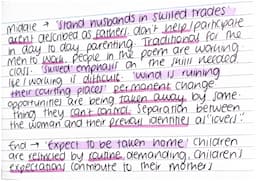 middle → 'stand husbands in skilled trades'
arent described as fathers, don't help/participate
in day to day parenting. Traditional for the
men to work. people in the poem are working
class. 'skilled' emphasis on the skill needed.
life/working is difficult. 'wind is ruining
their courting places' permanent change
opportunities are being taken away by some-
thing they can't control. separation between
the woman and their previous identities as "lovers".
End → 'expect to be taken home' Children
are reinforced by routine, demanding. Children's
expectations contribute to their mothers